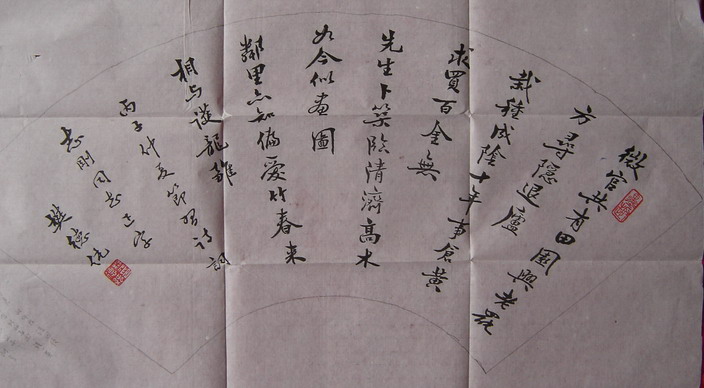 微官共有田園興老罷
方尋隱退廬
栽種成陰十年事倉黃
求買百金無
先生卜築臨清濟高木
如今似畫圖
鄰里亦知偏愛竹春来
相与護龍雛
丙子仲夏節
志剛同志正字